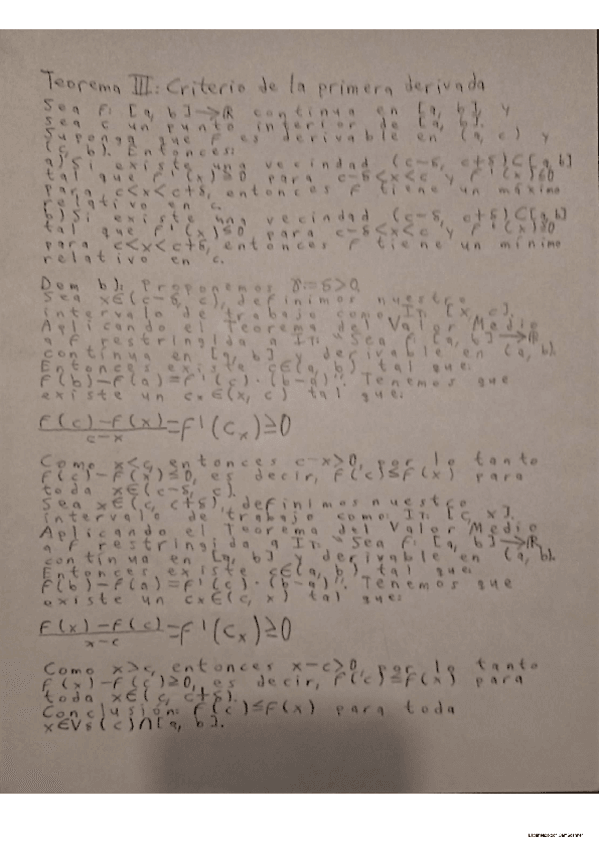 Teorema III: Criterio de la primera derivada
Sea f: [a, b]→ℝ continua en [a, b] y
sea c un punto interior de [a, b].
Suponga que f es derivable en (a, c) y
(c, b). Entonces:
a) Si existe una vecindad (c-δ, c+δ)⊂[a, b]
tal que f'(x)≥0 para c-δ<x<c y f'(x)≤0
para c<x<c+δ, entonces f tiene un máximo
relativo en c.
b) Si existe una vecindad (c-δ, c+δ)⊂[a, b]
tal que f'(x)≤0 para c-δ<x<c y f'(x)≥0
para c<x<c+δ, entonces f tiene un mínimo
relativo en c.
Dem b): Proponemos γ:=δ>0.
Sea x∈(c-δ, c), definimos nuestro
intervalo de trabajo como I₁: [x, c].
Aplicando el Teorema del Valor Medio
a f restringida a I₁: "Sea f: [a, b]→ℝ
continua en [a, b] y derivable en (a, b).
Entonces existe c∈(a, b) tal que:
f(b)-f(a)=f'(c)·(b-a)". Tenemos que
existe un cx∈(x, c) tal que:
f(c)-f(x)/c-x=f'(cx)≥0
Como x<c, entonces c-x>0, por lo tanto
f(c)-f(x)≤0, es decir, f(c)≤f(x) para
toda x∈(c-δ, c).
Sea x∈(c, c+δ), definimos nuestro
intervalo de trabajo como I₁: [c, x].
Aplicando el Teorema del Valor Medio
a f restringida a I₁: "Sea f: [a, b]→ℝ
continua en [a, b] y derivable en (a, b).
Entonces existe c∈(a, b) tal que:
f(b)-f(a)=f'(c)·(b-a)". Tenemos que
existe un cx∈(c, x) tal que:
f(x)-f(c)/x-c=f'(cx)≥0
Como x>c, entonces x-c>0, por lo tanto
f(x)-f(c)≥0, es decir, f(c)≤f(x) para
toda x∈(c, c+δ).
Conclusión: f(c)≤f(x) para toda
x∈Vδ(c)∩[a, b].